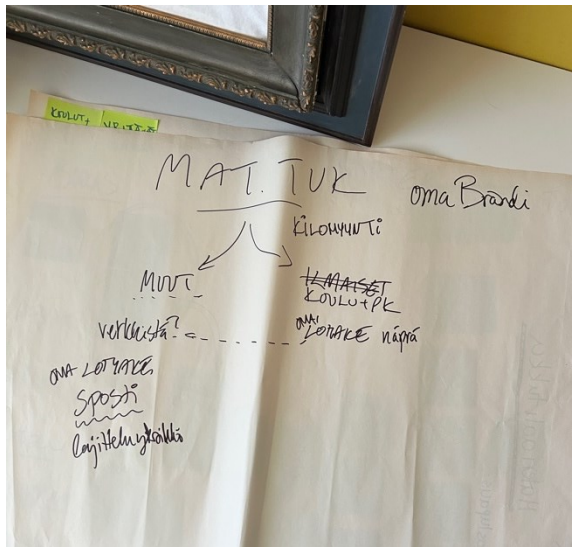 KOULUT+
MAT. TUK
oma Brandi
KILOMYYNTI
MUUT
ILMAISET
KOULU+PK
verkkistä?
OMA LOMAKE näprä
OMA LOMAKE
sposti
lajitteluyksikkö